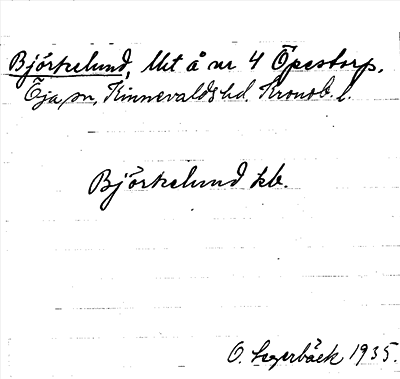 Björkelund, lht å nr 4 Öpestorp.
Öja sn, Kinnevalds hd. Kronob. l.
Björkelund hb.
O. Lagerbäck 1935.